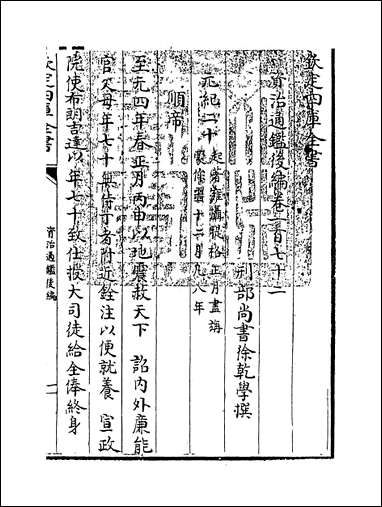 欽定四庫全書
資治通鑑後編卷一百七十二
刑部尚書徐乾學撰
元紀二十
起著雍攝提格正月盡旃
蒙作噩十二月凡八年
順帝
至元四年春正月丙申以地震赦天下 詔內外廉能
官父母年七十無侍丁者附近銓注以便就養 宣政
院使布朗吉達以年七十致仕授大司徒給全俸終身
欽定四庫全書
資治通鑑後編
一